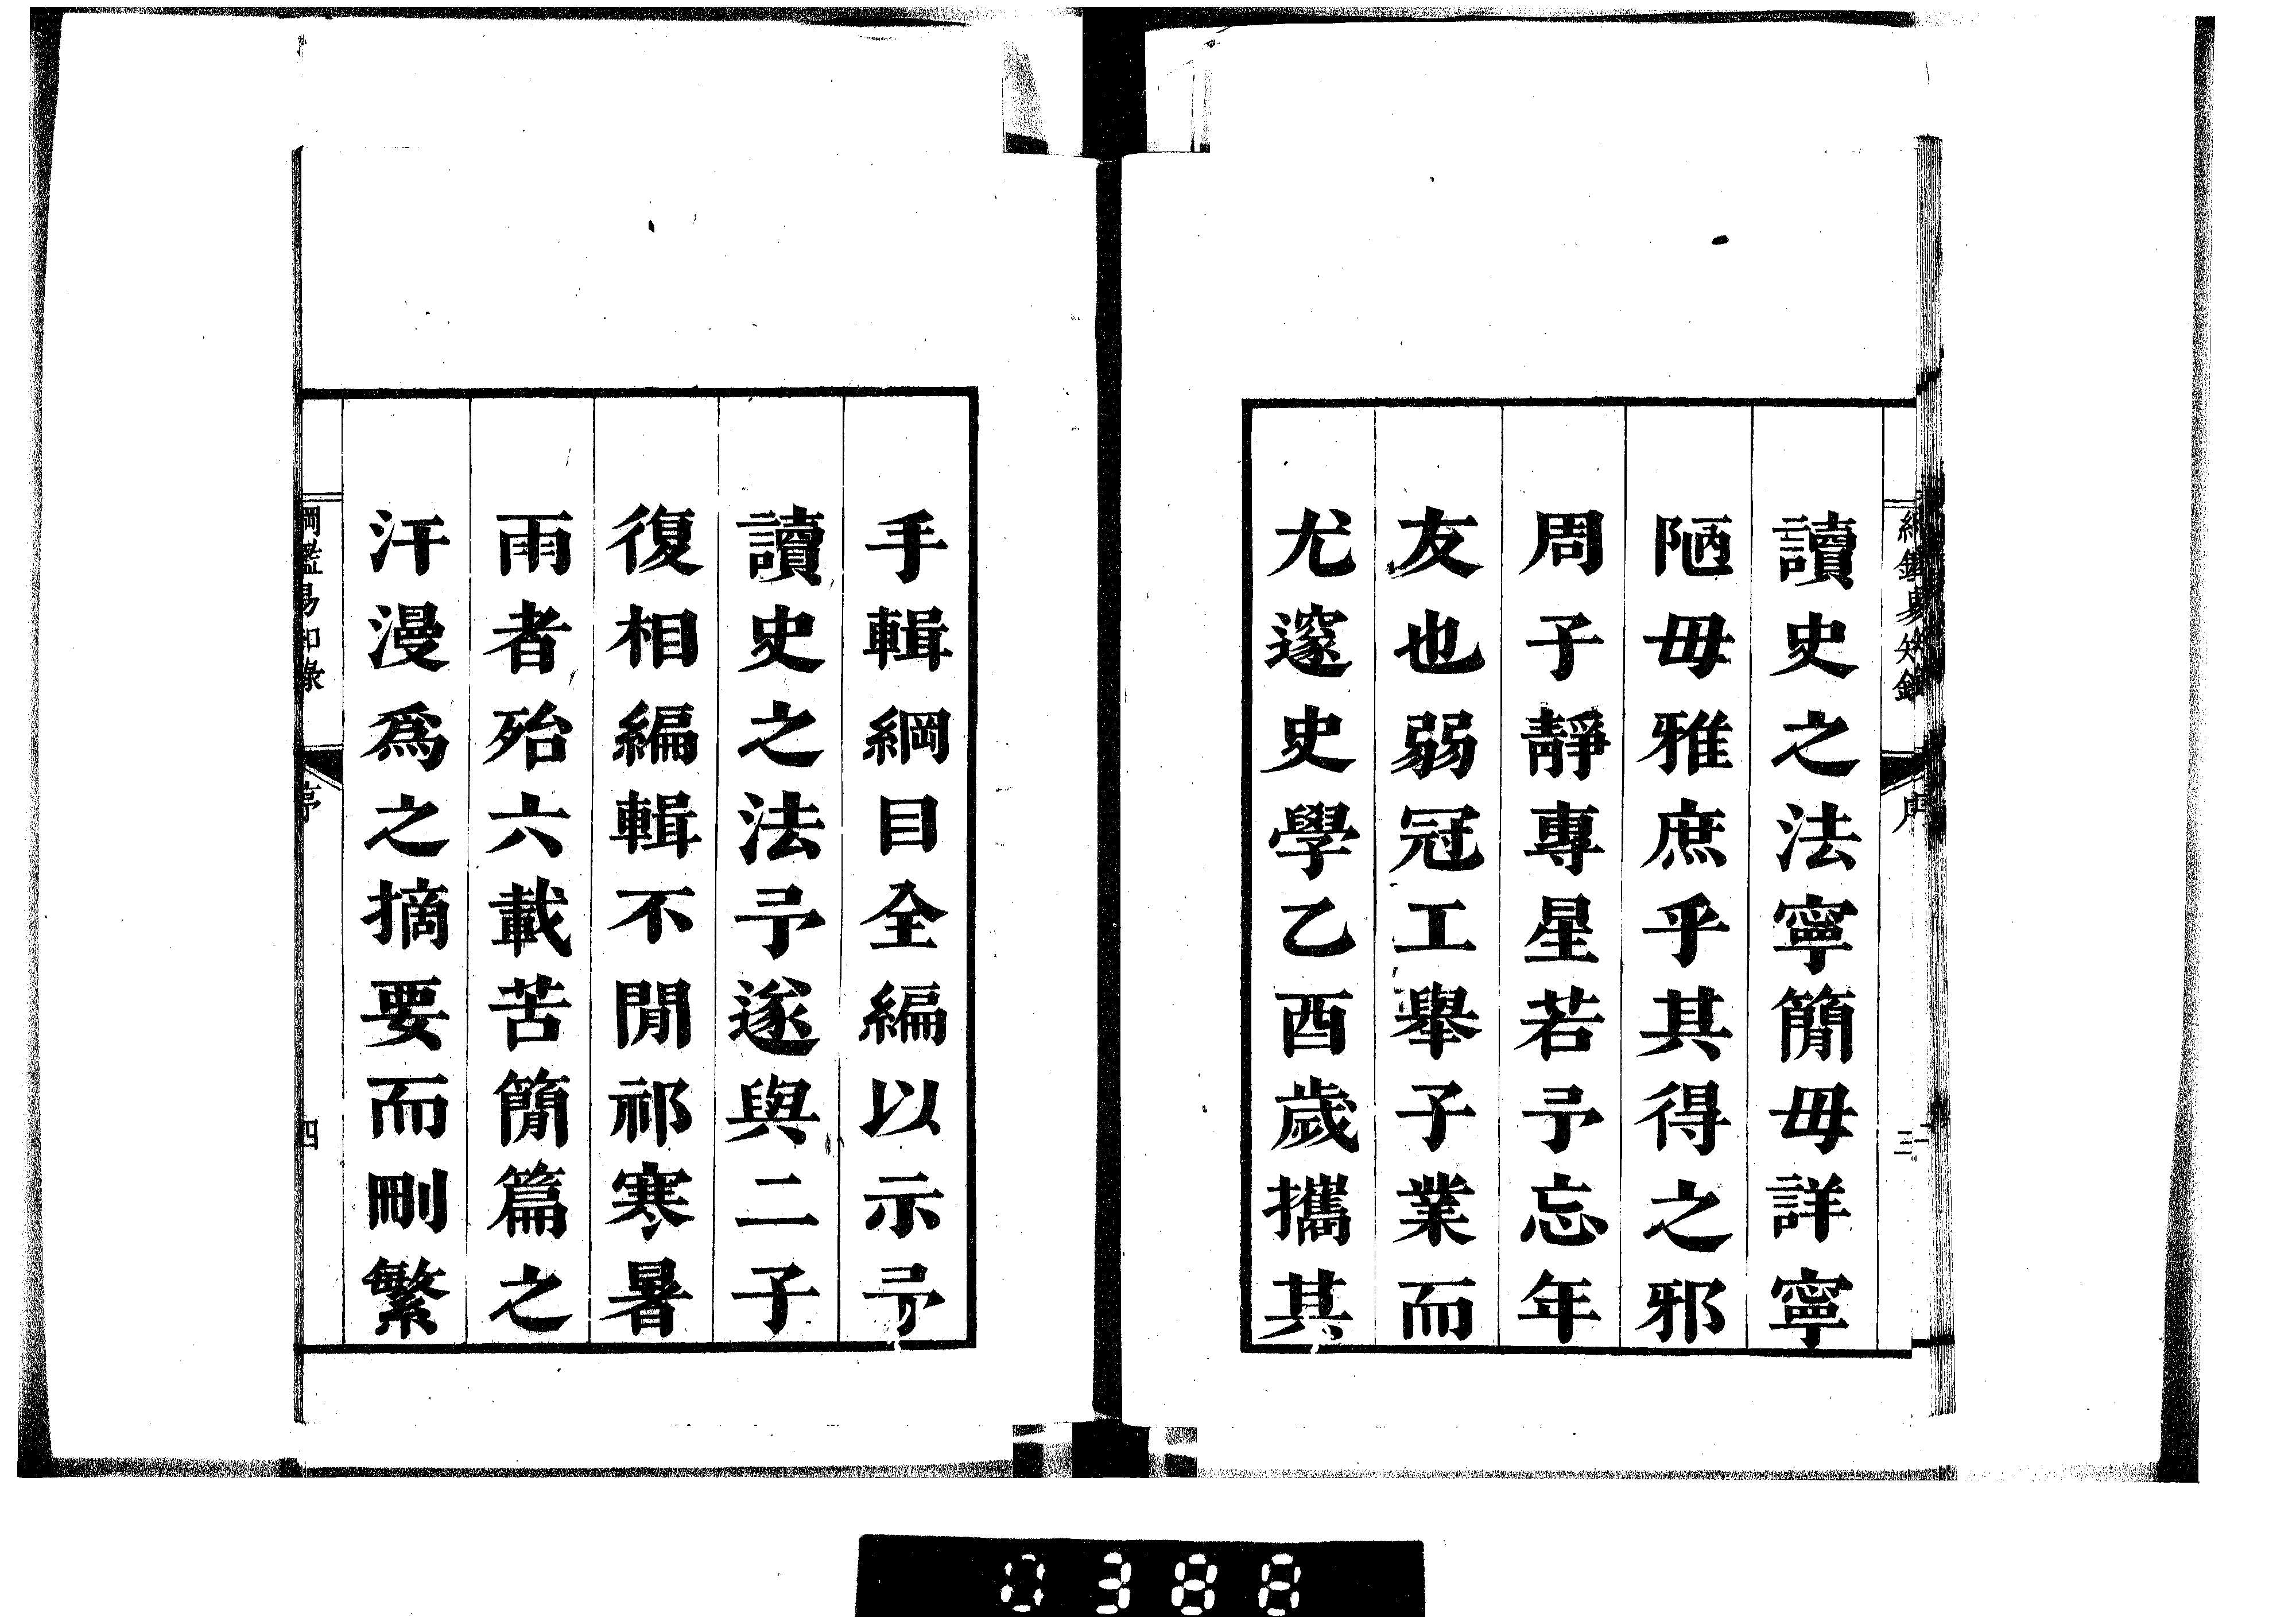 讀史之法寧簡毋詳寧
陋毋雅庶乎其得之邪
周子靜專星若予忘年
友也弱冠工舉子業而
尤邃史學乙酉歲攜其
手輯綱目全編以示予
讀史之法予遂與二子
復相編輯不閒祁寒暑
雨者殆六載苦簡篇之
汗漫爲之摘要而刪繁
綱鑑易知錄
四
0388